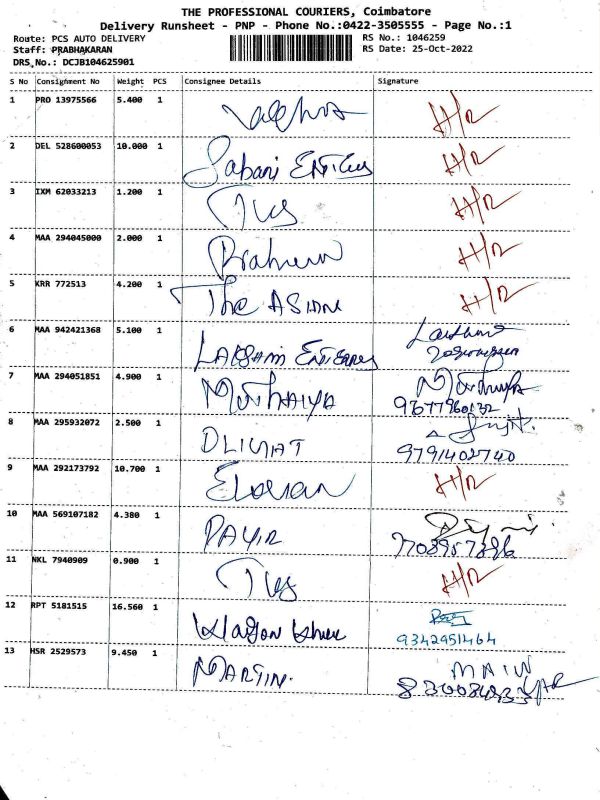 THE PROFESSIONAL COURIERS, Coimbatore
Delivery Runsheet - PNP - Phone No.:0422-3505555 - Page No.:1
Route: PCS AUTO DELIVERY RS No.: 1046259
Staff: PRABHAKARAN RS Date: 25-Oct-2022
DRS.No.: DCJB104625901
S No Consignment No Weight PCS Consignee Details Signature
1 PRO 13975566 5.400 1 H/R
2 DEL 528600053 10.000 1 Sabari H/R
3 IXM 62033213 1.200 1 TVS H/R
4 MAA 294045000 2.000 1 H/R
5 KRR 772513 4.200 1 The ASIAN H/R
6 MAA 942421368 5.100 1 LAKSHMI
7 MAA 294051851 4.900 1 MUTHAIYA
9677960132
8 MAA 295932072 2.500 1
9791402740
9 MAA 292173792 10.700 1 H/R
10 MAA 569107182 4.380 1 PAYIR
11 NKL 7940909 0.900 1 TVS H/R
12 RPT 5181515 16.560 1
9342951464
13 HSR 2529573 9.450 1 MARTIN. MAIN